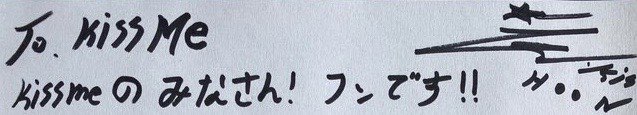 To. Kiss Me
Kissmeの みなさん! フンです!!